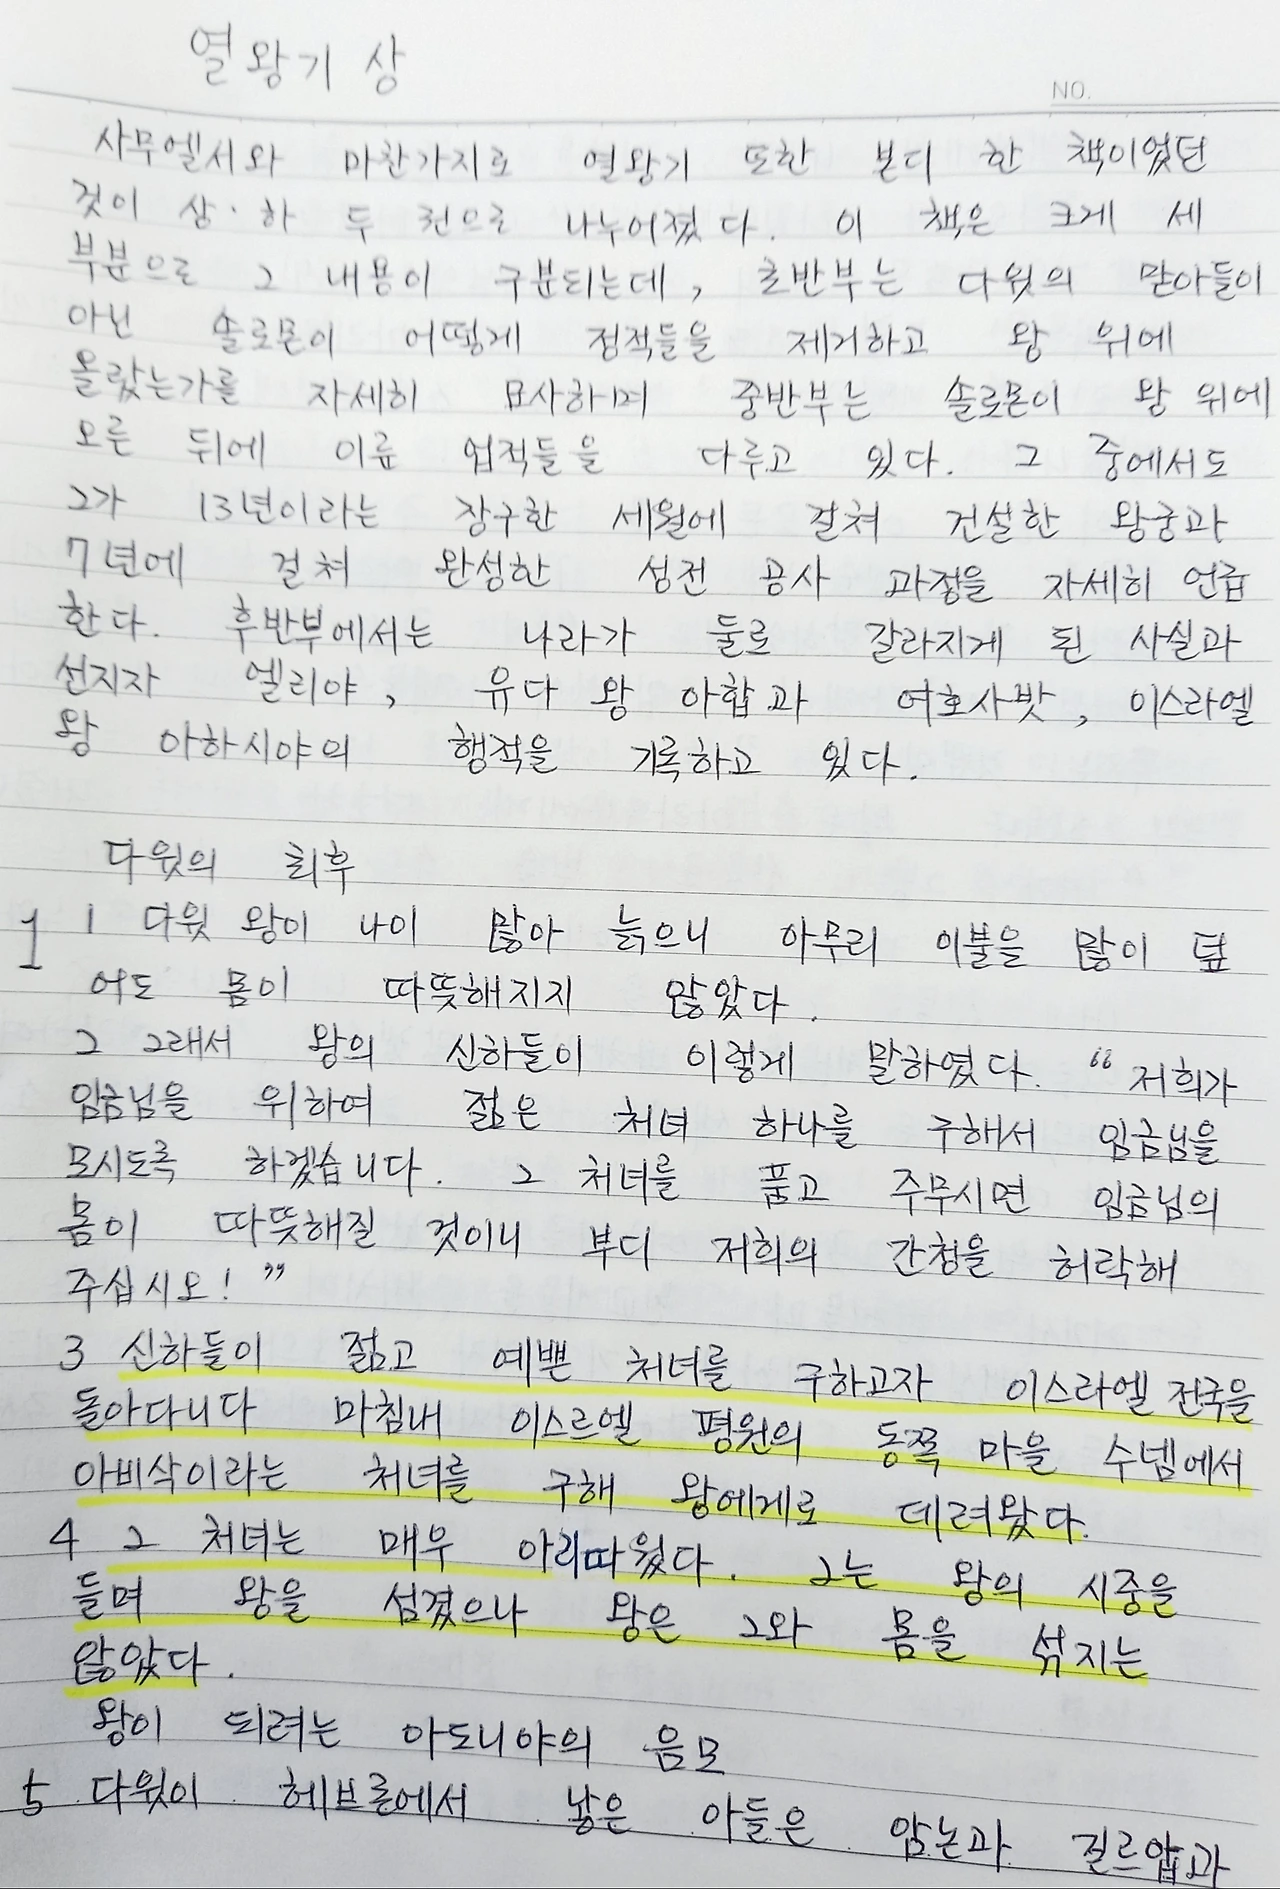 열왕기 상
NO.
사무엘서와 마찬가지로 열왕기 또한 본디 한 책이었던
것이 상·하 두 권으로 나누어졌다. 이 책은 크게 세
부분으로 그 내용이 구분되는데, 초반부는 다윗의 맏아들이
아닌 솔로몬이 어떻게 정적들을 제거하고 왕 위에
올랐는가를 자세히 묘사하며 중반부는 솔로몬이 왕 위에
오른 뒤에 이룬 업적들을 다루고 있다. 그 중에서도
그가 13년이라는 장구한 세월에 걸쳐 건설한 왕궁과
7년에 걸쳐 완성한 성전 공사 과정을 자세히 언급
한다. 후반부에서는 나라가 둘로 갈라지게 된 사실과
선지자 엘리야, 유다 왕 아합과 여호사밧, 이스라엘
왕 아하시야의 행적을 기록하고 있다.
다윗의 최후
1 1 다윗 왕이 나이 많아 늙으니 아무리 이불을 많이 덮
어도 몸이 따뜻해지지 않았다.
2 그래서 왕의 신하들이 이렇게 말하였다. “저희가
임금님을 위하여 젊은 처녀 하나를 구해서 임금님을
모시도록 하겠습니다. 그 처녀를 품고 주무시면 임금님의
몸이 따뜻해질 것이니 부디 저희의 간청을 허락해
주십시오!”
3 신하들이 젊고 예쁜 처녀를 구하고자 이스라엘 전국을
돌아다니다 마침내 이스르엘 평원의 동쪽 마을 수넴에서
아비삭이라는 처녀를 구해 왕에게로 데려왔다.
4 그 처녀는 매우 아리따웠다. 그는 왕의 시중을
들며 왕을 섬겼으나 왕은 그와 몸을 섞지는
않았다.
왕이 되려는 아도니야의 음모
5 다윗이 헤브론에서 낳은 아들은 암논과 길르압과